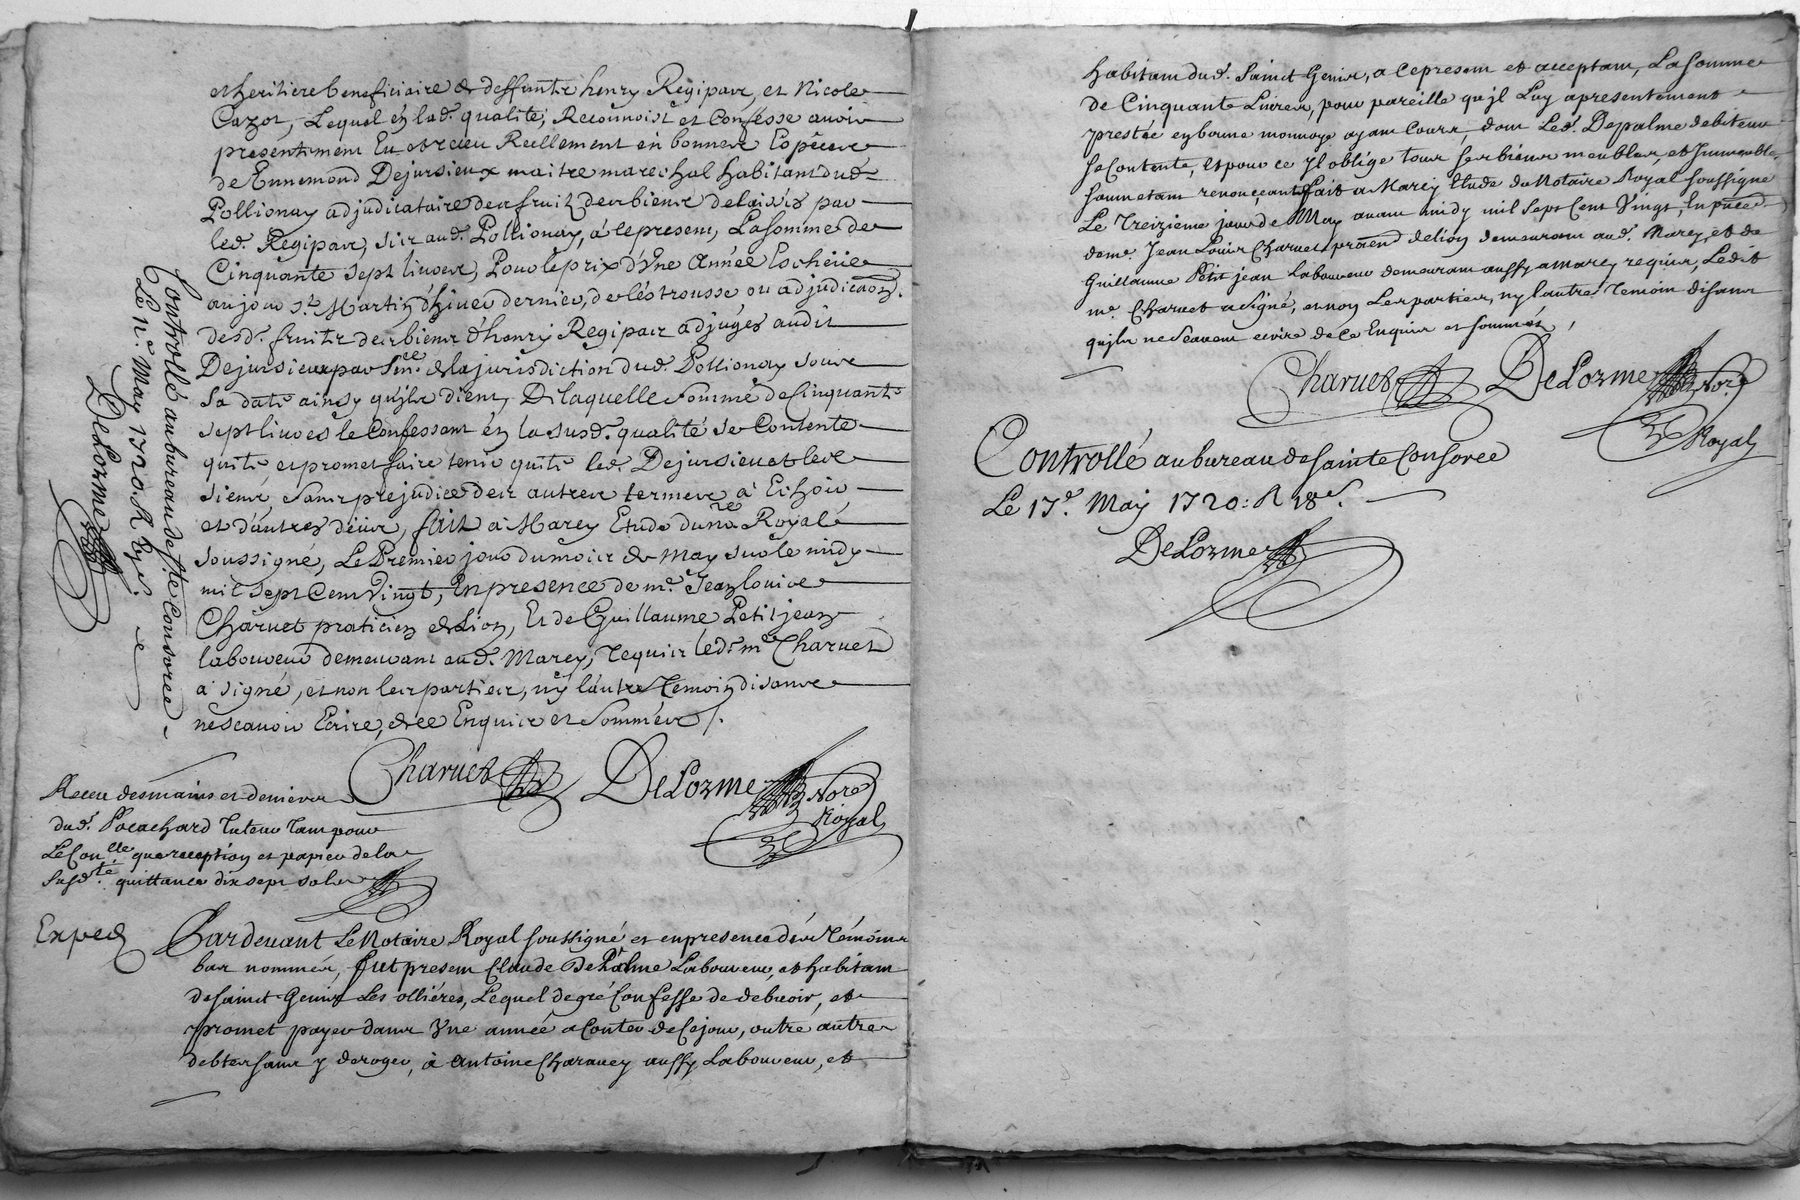 et heritiere beneficiaire de deffuntz henry Regipas, et Nicole
Cazot, Lequel en lad. qualité, Reconnoist et Confesse avoir
presentement Eu et receu Reellement en bonnes Espèces
de Ennemond Dejursieux maitre marechal habitant dud.
Pollionay adjudicataire des fruitz des biens delaissés par
led. Regipas, sis aud. Pollionay, à ce present, La somme de
Cinquante sept livres, Pour le prix d'Une Année Escheüe
au jour St. Martin d'hiver dernier, de
desd. fruitz des biens d'henry Regipas adjugés audit
Dejursieux par Sence. de la jurisdiction dud. Pollionay sous
sa date ainsy qu'ils dient, De laquelle somme de Cinquante
sept livres le Confessant en la susd. qualité se Contente
quite, et promet faire tenir quite led. Dejursieu et les
siens, sans prejudice des autres termes à Echoir
et d'autres deüs, fait à Marcy Etude du nore. Royal
soussigné, Le Premier jour du mois de May sur le midy
mil sept Cent Vingt, En presence de me. Jean louis
Charvet praticien de Lion, Et de Guillaume Petitjean
laboureur demeurant aud. Marcy, requis led. me. Charvet
a signé, et non les parties, ny l'autre Temoin disants
ne scavoir Ecrire, de ce Enquis et Sommés /.
Charvet DeLorme Nore
Royal
Controllé au bureau de Ste Consorce
Le 11e. May 1720. R
DeLorme
Receu des mains et deniers
dud. Pocachard Tuteur Tam pour
Le Conlle. que reception et papier de la
susdte. quittance dix sept sols
Exped
Pardevant Le Notaire Royal soussigné et en presence des Témoins
bas nommés, fut present Claude DePalme Laboureur, et habitant
de Sainct Genis Les ollières, Lequel de gré Confesse de debvoir, et
promet payer dans Une année a Conter de Ce jour, outre autres
debtes sans y deroger, à Antoine Charavey aussy Laboureur, et
habitant dud. Sainct Genis, a Ce present et acceptant, La somme
de Cinquante Livres, pour pareille qu'jl Luy a presentement
prestée en bonne monnoye ayant Cours, dont Led. Depalme debiteur
se Contente, et pour ce jl oblige tous ses biens meubles, et Immeubles
soumetant renonçeant fait a Marcy Etude du Notaire Royal soussigné
Le Treizieme jour de May avant midy mil sept Cent Vingt, En presence
de me. Jean Louis Charvet praticien de lion demeurant aud. Marcy, et de
Guillaume Petit jean Laboureur demeurant aussy a Marcy requis, Ledit
me. Charvet a signé, et non Les parties, ny l'autre Temoin disant
qu'jls ne Scavent ecrire de Ce Enquis et sommés,
Charvet DeLorme Nore
Royal
Controllé au bureau de Sainte Consorce
Le 17e. May 1720: R 18s.
DeLorme